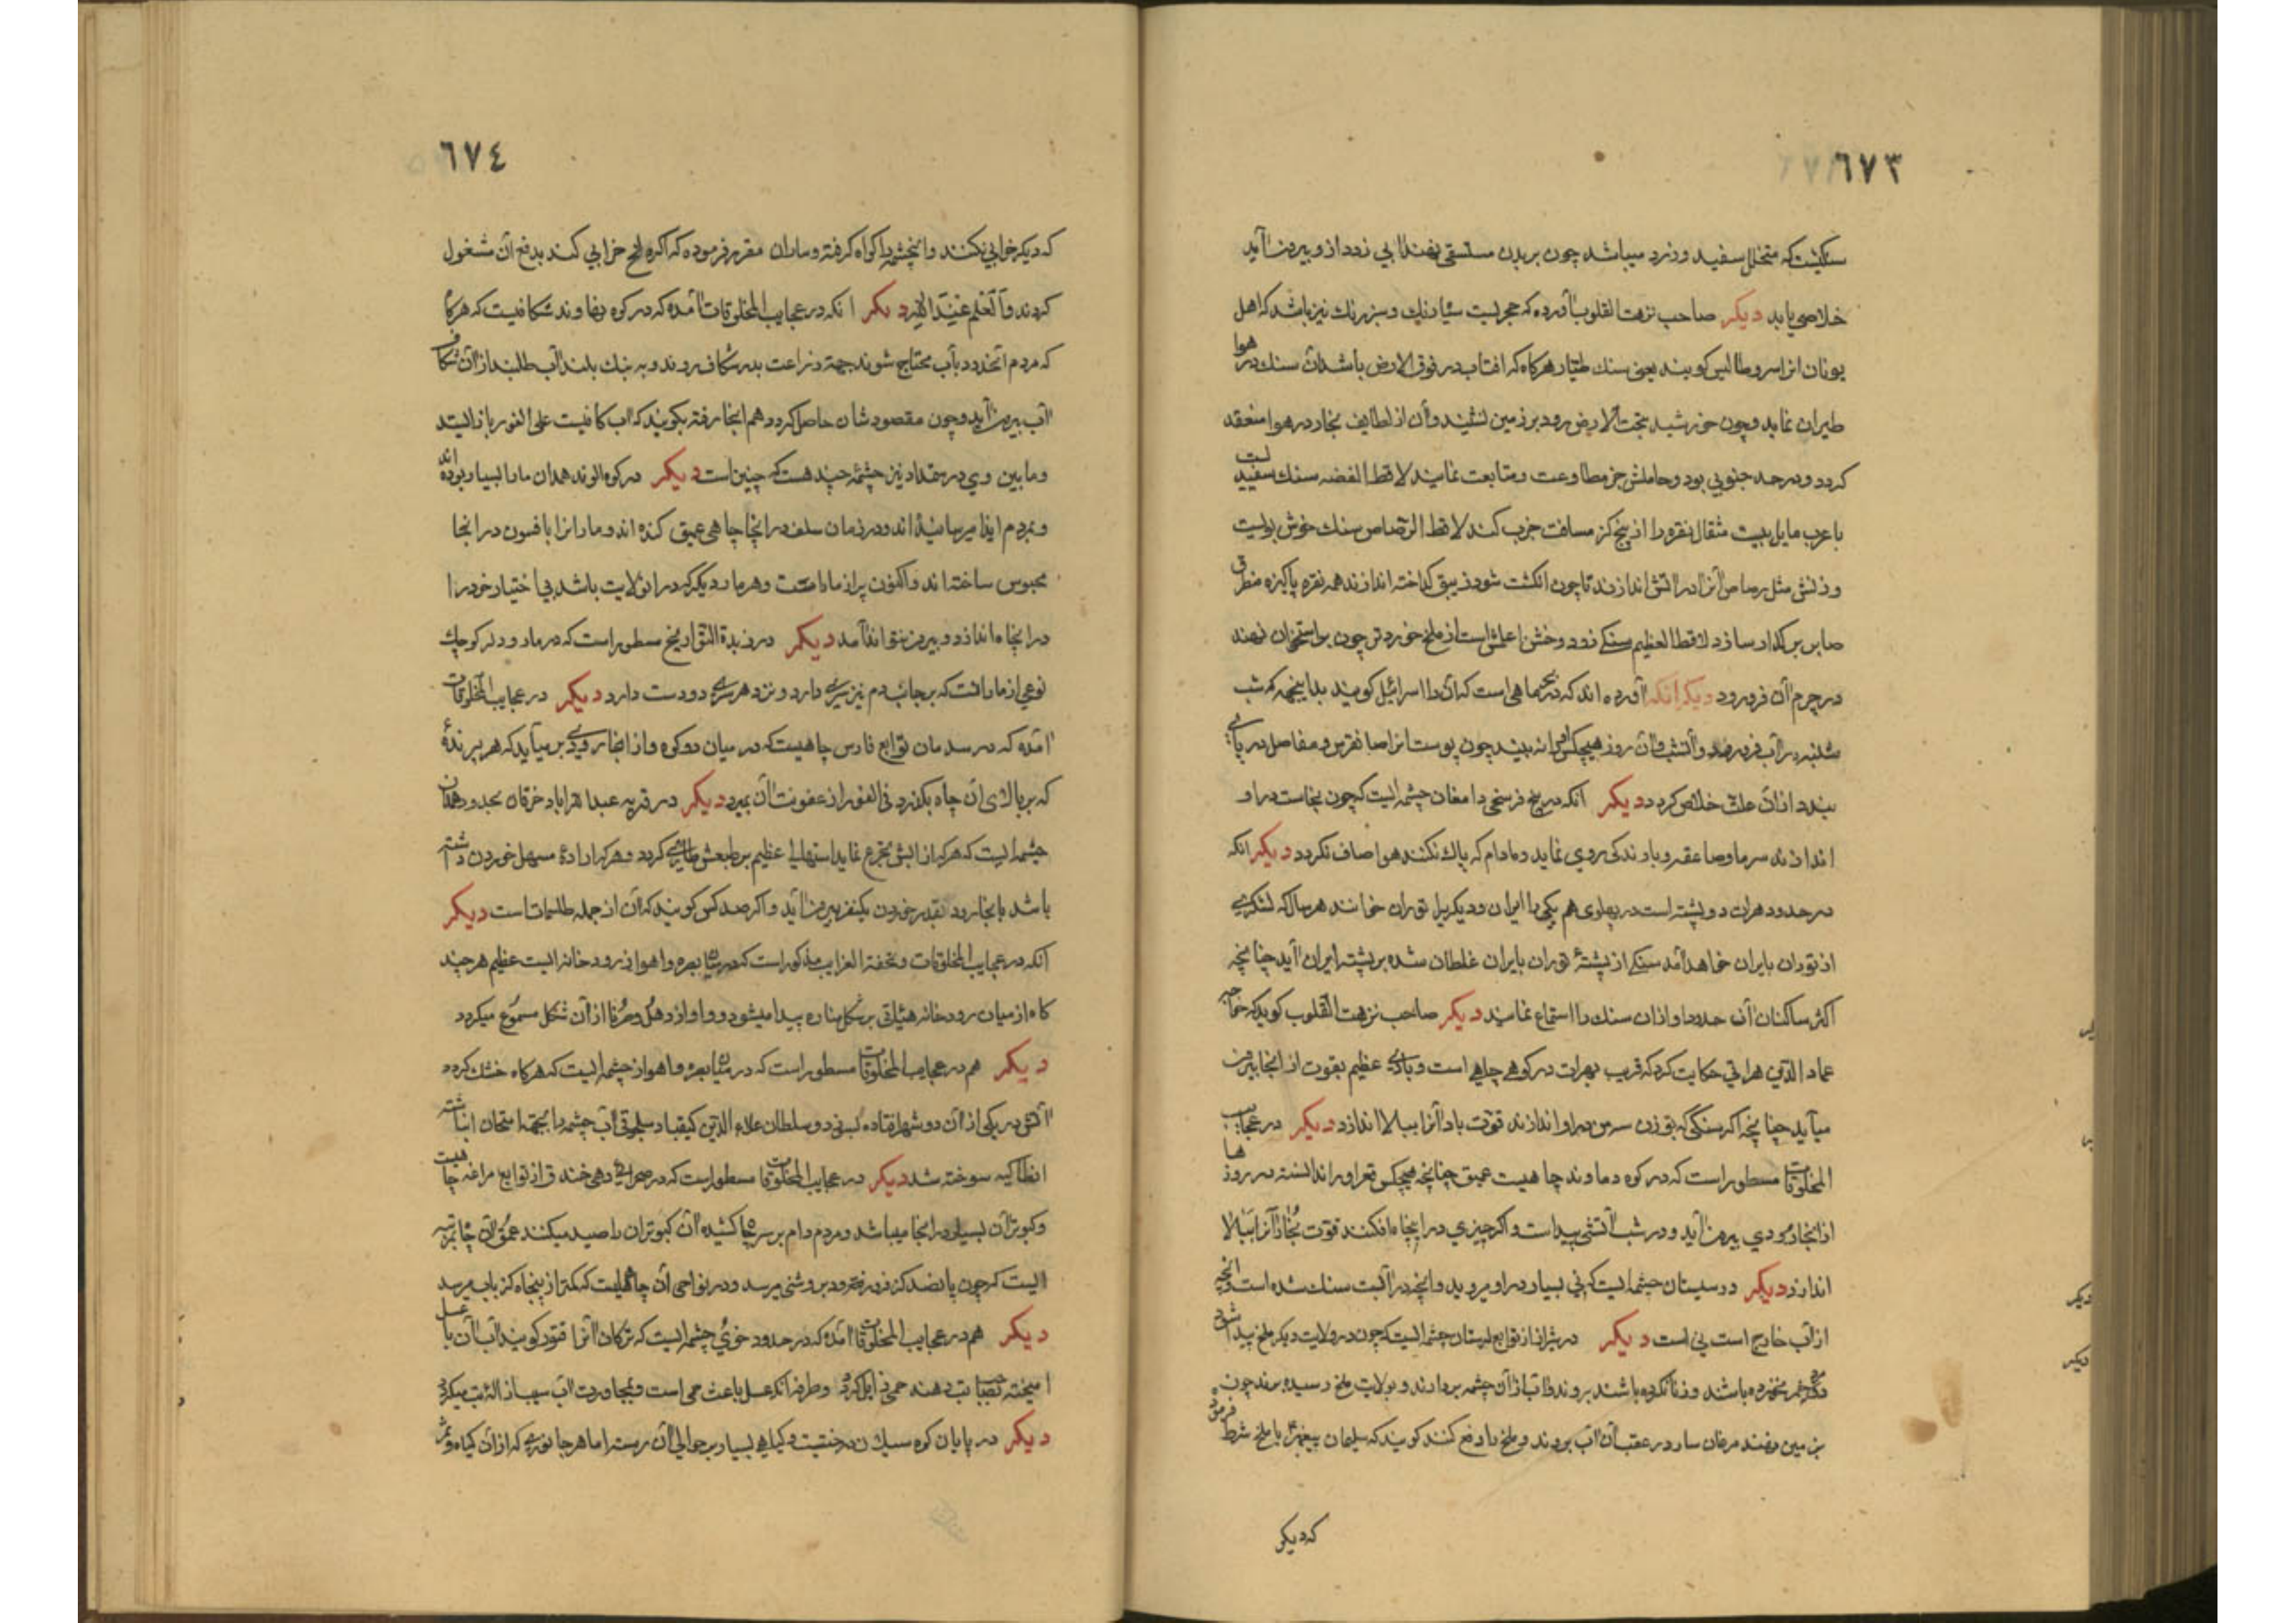 ٦٧٣
سنگیست که متخلل سفید و زرد میباشد چون بر بدن مستسقی نهند آبی زرد از و بیرون آید
خلاصی یابد دیکر صاحب نزهت القلوب آورده که حجریست سیاه رنك و سبز رنك نیز باشد که اهل
یونان انرا سروطالیس کویند یعنی سنك طیار هرکاه که افتاب در فوق الارض باشد آن سنك در هوا
طیران نماید و چون خورشید بتحت الارض رود بر زمین نشیند و آن از لطایف بخار در هوا منعقد
کردد و در حد جنوبی بود و حاملش جن مطاوعت و متابعت نمایند لاقط الفضه سنك سفید یست
با عرب مایل بیست مثقال نقره را از پنج کز مسافت جزب کند لاقط الرصاص سنك خوش بویست
وزنش مثل رصاص آنرا در اتش اندازند تا چون انکشت شود زیبق کداخته اندازند همه نقره پاکیزه منطرق
صابر بر کداز سازد لاقط العظیم سنکی زرد و خشن املس است از ملخ خوردتر چون بر استخوان نهند
در جرم آن فرو رود دیکر انکه آورده اند که در بحر ماهی است که آن را اسرائیل کویند بدا ینجهه که شب
شنبه در آب فرو رود و آنشب و آن روز هیچکس او را نه بیند چون پوست انرا صا نقرس و مفاصل در پای
بندد از آن علت خلاص کردد دیکر انکه در پنج فرسخی دامغان چشمه ایست که چون نجاست در او
اندازند سرما و صاعقه و باد ندکی روی نماید و مادام که پاك نکنند هوا صاف نکردد دیکر انکه
در حدود هرات دو پشته است در پهلوی هم یکی را ایران و دیکریرا توران خوانند هر سال که لشکری
از توران بایران خواهد آمد سنکی از پشتهٔ توران بایران غلطان شده بر پشته ایران آید چنانچه
اکثر ساکنان آن حدود اواز ان سنك را استماع نمایند دیکر صاحب نزهت القلوب کوید که خواجه
عماد الدین هراتی حکایت کرد که قریب بهرات در کوهی چاهی است و بادی عظیم بقوت از انجا بیرون
میآید چنانچه اکر سنکی که بوزن سی من در او اندازند قوت باد آنرا ببالا اندازد دیکر در عجایب
المخلوقات مسطور است که در کوه دماوند چاهیست عمیق چنانچه هیچکس قعر او را ندانسته در روزها
از انجا دودی بیرون آید و در شب آتشی پیداست و اکر چیزی در انجا افکنند قوت بخار آنرا ببالا
اندازد دیکر در سیستان چشمه ایست که نی بسیار در او میروید و انچه در آبست سنك شده است و انچه
از آب خارج است نی است دیکر در شیراز از توابع لرستان چشمه ایست که چون در ولایت دیکر ملخ پیدا شود
دو مرد که خمر نخورده باشند و زنا نکرده باشند بروند و آب از آن چشمه بردارند و بولایت ملخ رسیده برند چون
بزمین نهند مرغان سار در عقب آن آب بروند و ملخ را دفع کنند کویند که سلیمان پیغمبر با ملخ شرط فرموده
که دیکر
٦٧٤
که دیکر خرابی نکنند و آنچشمه را کواه کرفته و ساران مقرر فرموده که اکر ملخ خرابی کند بدفع آن مشغول
کردند والعلم عندالله دیکر انکه در عجایب المخلوقات آمده که در کوه نهاوند شکافیست که هرکاه
که مردم آنحدود بآب محتاج شوند جهة زراعت بدر شکاف روند و به بانك بلند آب طلبند از آن شکاف
آب بیرون آید و چون مقصود شان حاصل کردد هم انجا رفته بکویند که آب کافیست علی الفور باز ایستد
و مابین ری و سمنان نیز چشمهٔ چند هست که چنین است دیکر در کوه الوند همدان مار بسیار بوده اند
و بمردم ایذا میرسانیده اند و در زمان سلف در انجا چاهی عمیق کنده اند و مارانرا بافسون در انجا
محبوس ساخته اند و اکنون پر از مار است و هر مار دیکر که در آنولایت باشد بی اختیار خود را
در انجا اندازد و بیرون نتواند آمد دیکر در زبدة التواریخ مسطور است که در ماورد لر کوچك
نوعی از مار است که بر جانب دم نیز سری دارد و نزد هر سری دو دست دارد دیکر در عجایب المخلوقات
آمده که در سد مان توابع فارس چاهیست که در میان دو کوه و از انجا دودی بر میآید که هر پرندهٔ
که بر بالای ان چاه بکذرد فی الفور از عفونت آن بمیرد دیکر در قریه عبدالله اباد خرقان بحدود همدان
چشمه ایست که هر که از آبش تجرع نماید اسهالی عظیم بر طبعش طاری کردد و هر که ارادهٔ مسهل خوردن داشته
باشد بانجا رود بقدر خوردن یکنفر بیرون آید و اکر صد کس کویند که آن از جمله طلسمات است دیکر
انکه در عجایب المخلوقات و تحفة الغرایب مذکور است که در میان بصره و اهواز رودخانه ایست عظیم هر چند
کاه از میان رودخانه هیئاتی بر شکل مناره پیدا میشود و اواز دهل و سرنا از آن شکل مسموع میکردد
دیکر هم در عجایب المخلوقات مسطور است که در میان بصره و اهواز چشمه ایست که هرکاه خشك کردد
آتش در یکی از آن دو شهر افتاده بسوزد و سلطان علاء الدین کیقباد سلجوقی آب چشمه را بجهة امتحان انباشته
انطاکیه سوخته شد دیکر در عجایب المخلوقات مسطور است که در صحرای دهی خندق از توابع مراغه چاهیست
و کبوتران بسیار در انجا میباشد و مردم دام بر سر چاه کشیده آن کبوتران را صید میکنند عمق آن چاه بمرتبه
ایست که چون پانصد کز فرو روند بروشنی میرسد و در نواحی آن چاهیست که کمتر از پنجاه کز بآب میرسد
دیکر هم در عجایب المخلوقات آمده که در حدود خوی چشمه ایست که ترکان آنرا قنور کویند آب آن با عسل
امیخته بصاحب تب دهند حمی زایل کردد و طرفه انکه عسل باعث حمی است و بمجاورت آب سبب ازالهٔ تب میکردد
دیکر در پایان کوه سبلان درختیست و کیاهی بسیار بر حوالی آن رسته اما هر جانوری که از ان کیاه و ثمر